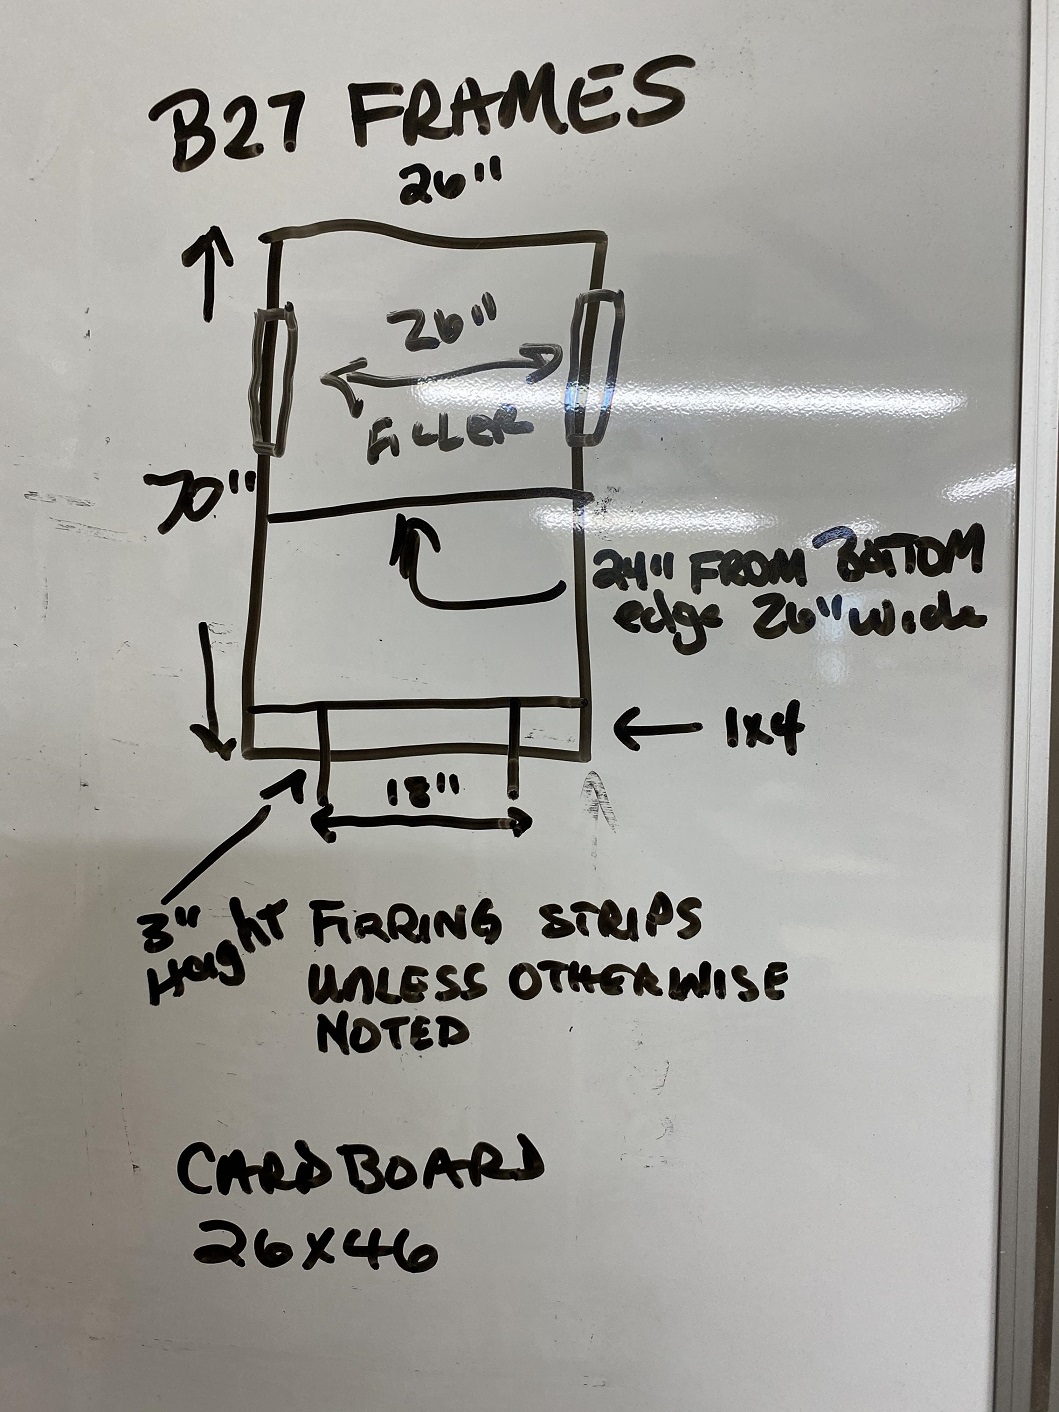 B27 FRAMES
26"
26"
FILLER
70"
24" FROM BOTTOM
edge 26" wide
1x4
18"
3"
Height
FIRRING STRIPS
UNLESS OTHERWISE
NOTED
CARDBOARD
26x46